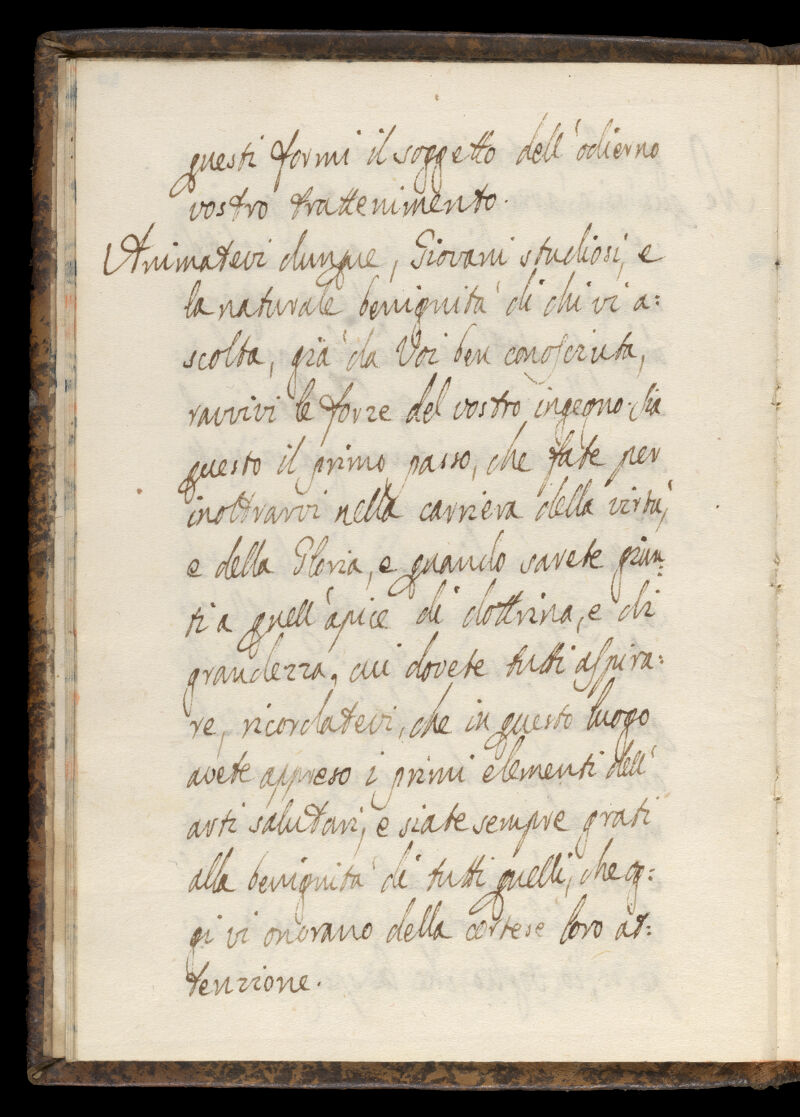 questi formi il soggetto dell'odierno
vostro trattenimento.
Animatevi dunque, Giovani studiosi, e
la naturale benignità di chi vi a:
scolta, già da Voi ben conosciuta,
ravvivi le forze del vostro ingegno. Sia
questo il primo passo, che fate per
inoltrarvi nella carriera della virtù,
e della Gloria, e quando sarete giun:
ti a quell'apice di dottrina, e di
grandezza, cui dovete tutti aspira:
re, ricordatevi, che in questo luogo
avete appreso i primi elementi dell'
arti salutari, e siate sempre grati
alla benignità di tutti quelli, che og:
gi vi onorano della cortese loro at:
tenzione.